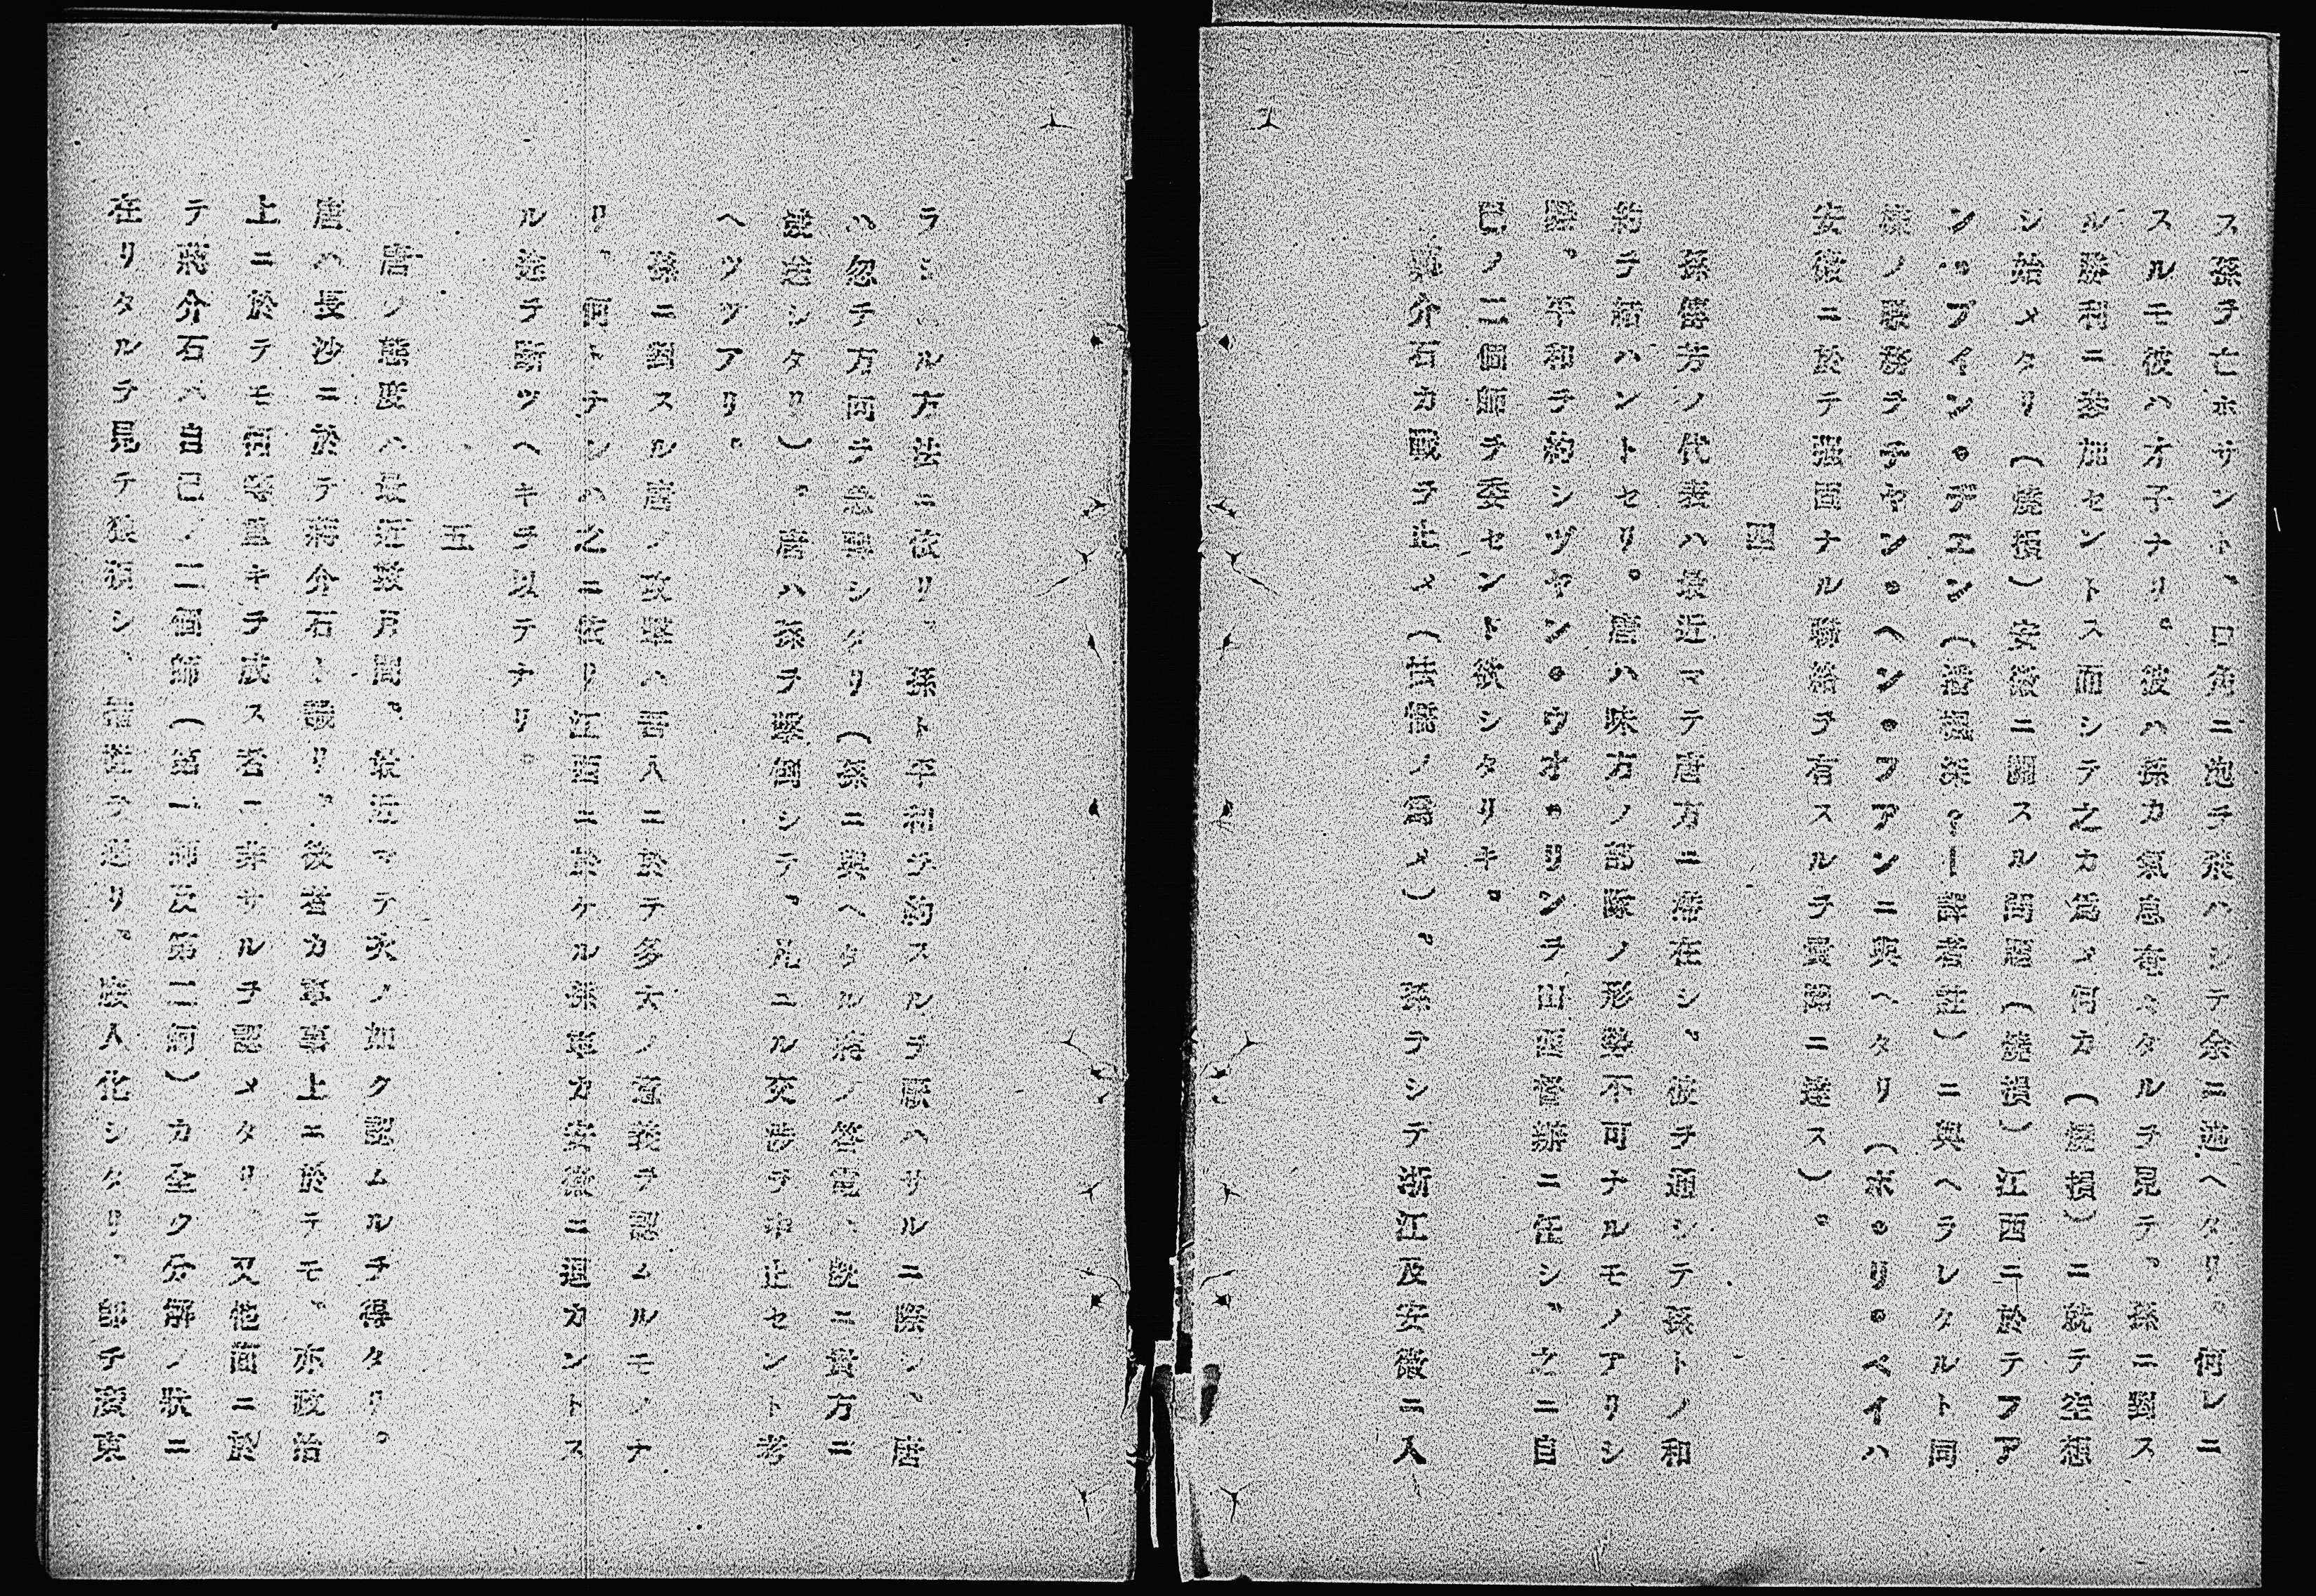 ス孫ヲ亡ホサント、口角ニ泡ヲ飛ハシテ余ニ述ヘタリ。何レニ
スルモ彼ハオ子ナリ。彼ハ孫カ氣息奄々タルヲ見テ、孫ニ對ス
ル勝利ニ参加セントス而シテ之カ為メ何カ（毀損）ニ就テ空想
シ始メタリ（毀損）安徽ニ關スル問題（毀損）江西ニ於テフア
ン・プイン・デエン（　？ー譯者註）ニ與ヘラレタルト同
様ノ職務ヲチヤン・ヘン・フアンニ與ヘタリ（ボ・リ・ペイハ
安徽ニ於テ強固ナル聯絡ヲ有スルヲ貴閣ニ達ス）。
四
孫傳芳ノ代表ハ最近マテ唐方ニ滞在シ、彼ヲ通シテ孫トノ和
約ヲ結ハントセリ。唐ハ味方ノ部隊ノ形勢不可ナルモノアリシ
際、平和ヲ約シヅヤン・ウオ・リンヲ山西督辦ニ任シ、之ニ自
己ノ二個師ヲ委セント欲シタリキ。
蔣介石カ戰ヲ止メ（其懼ノ爲メ）、孫ヲシテ浙江及安徽ニ入
ラシムル方法ニ依リ、孫ト平和ヲ約スルヲ願ハサルニ際シ、唐
ハ忽チ方向ヲ變更シタリ（孫ニ與ヘタル蔣ノ答電ハ既ニ貴方ニ
送シタリ）。唐ハ孫ヲ撃倒シテ、凡ユル交渉ヲ中止セント考
ヘツツアリ。
孫ニ對スル唐ノ攻撃ハ吾人ニ於テ多大ノ意義ヲ認ムルモノナ
リ、何トナレハ之ニ依リ江西ニ於ケル孫軍カ安徽ニ退カントス
ル途ヲ斷ツヘキヲ以テナリ。
五
唐ノ態度ハ最近數月間、最近マテ次ノ如ク認ムルヲ得タリ。
唐ハ長沙ニ於テ蔣介石ト議リ、後者カ軍事上ニ於テモ、亦政治
上ニ於テモ何等重キヲ成ス者ニ非サルヲ認メタリ。又他面ニ於
テ蔣介石ハ自己ノ二個師（第一師及第二師）カ全ク分解ノ狀ニ
在リタルヲ見テ狼狽シ、　ヲ　リ、廣人化シタリ。即チ廣東